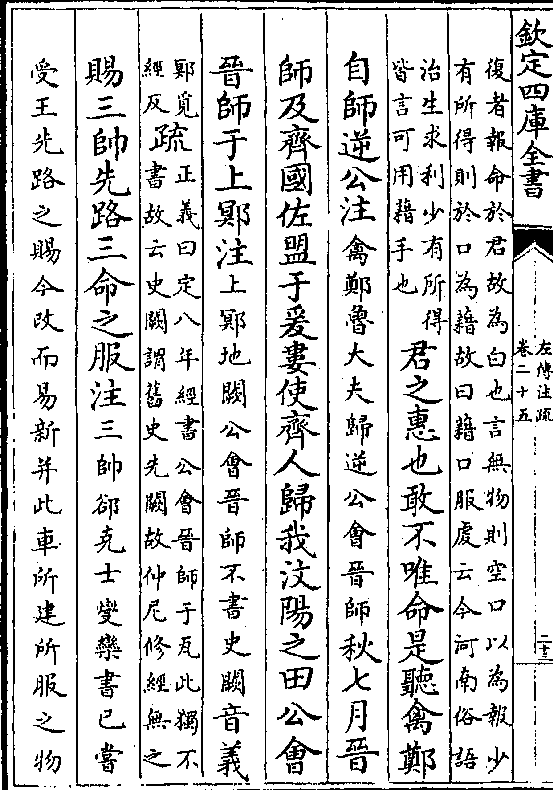 欽定四庫全書
左傳注疏
卷二十五
二十三
復者報命於君故為白也言無物則空口以為報少
有所得則於口為藉故曰藉口服虔云今河南俗語
治生求利少有所得
皆言可用藉手也
君之惠也敢不唯命是聽禽鄭
自師逆公注禽鄭魯大夫歸逆公會晉師秋七月晉
師及齊國佐盟于爰婁使齊人歸我汶陽之田公會
晉師于上鄍注上鄍地闕公會晉師不書史闕音義
鄍覓
經反
疏
正義曰定八年經書公會晉師于瓦此獨不
書故云史闕謂舊史先闕故仲尼修經無之
賜三帥先路三命之服注三帥郤克士燮欒書已嘗
受王先路之賜今改而易新并此車所建所服之物